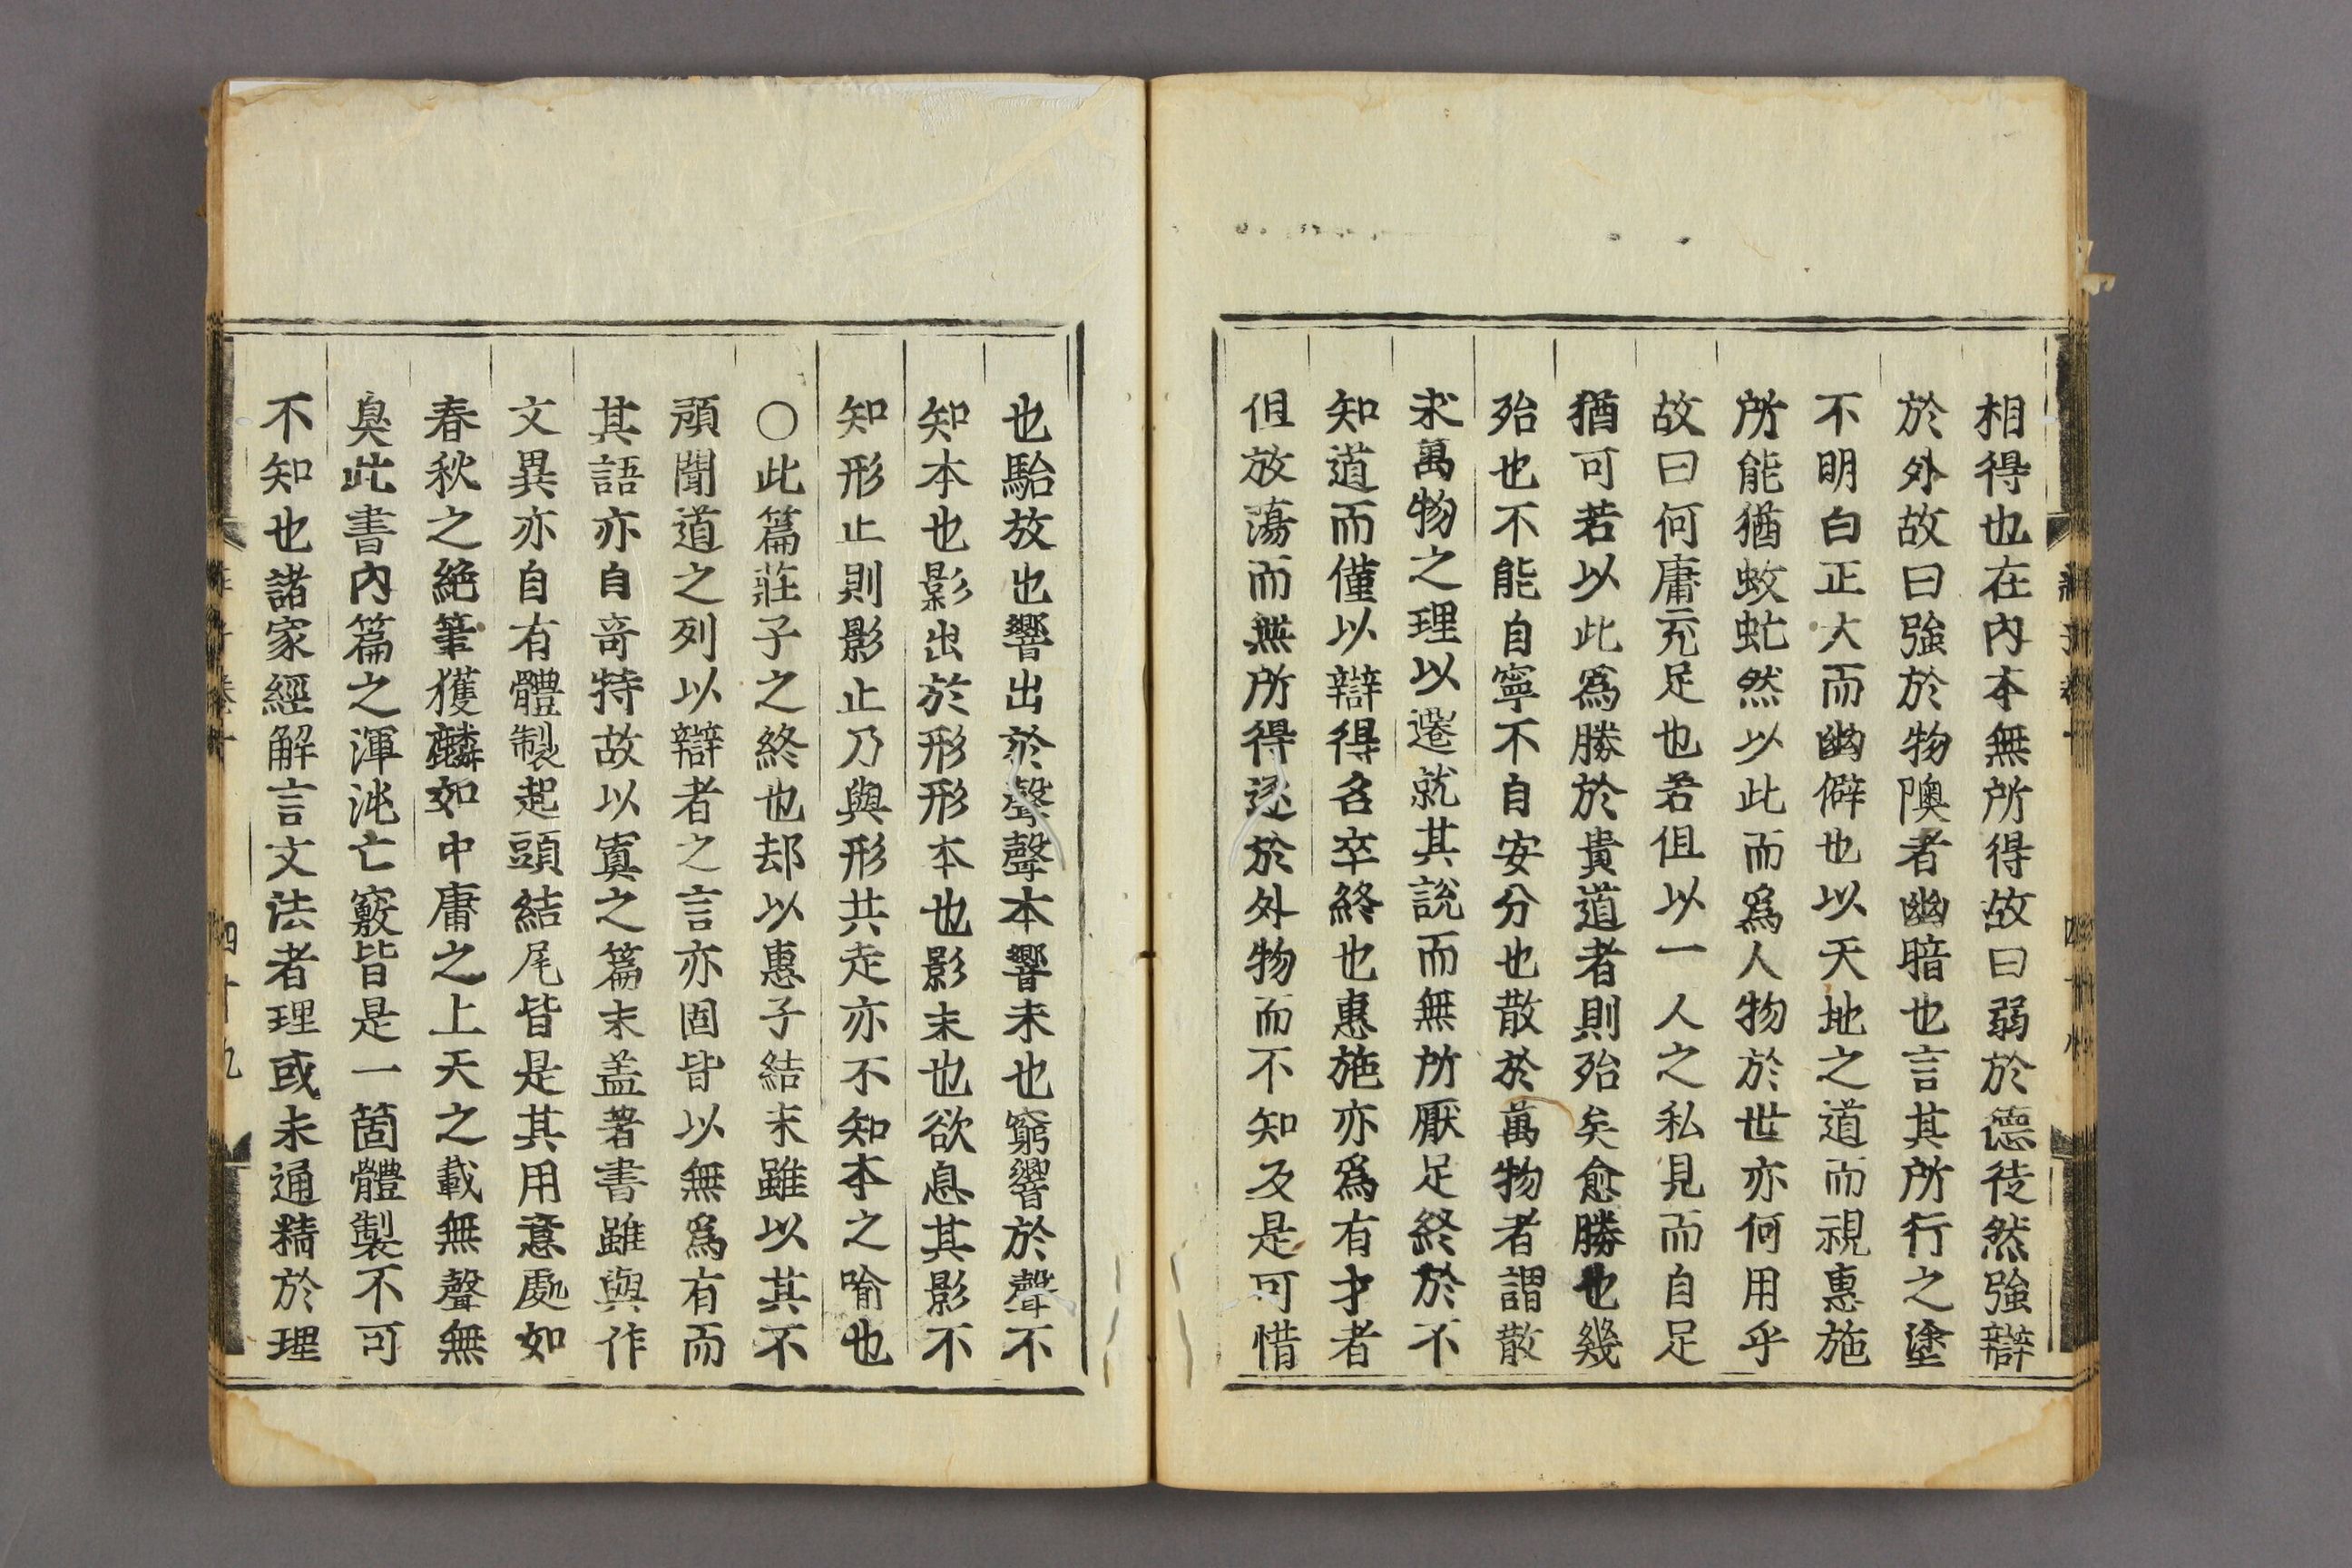 相得也在內本無所得故曰弱於德徒然強辯
於外故曰強於物隩者幽暗也言其所行之塗
不明白正大而幽僻也以天地之道而視惠施
所能猶蚊虻然以此而爲人物於世亦何用乎
故曰何庸充足也若但以一人之私見而自足
猶可若以此爲勝於貴道者則殆矣愈勝也幾
殆也不能自寧不自安分也散於萬物者謂散
求萬物之理以遷就其說而無所厭足終於不
知道而僅以辯得名卒終也惠施亦爲有才者
但放蕩而無所得逐於外物而不知反是可惜
也駘放也響出於聲聲本響末也窮響於聲不
知本也影出於形形本也影末也欲息其影不
知形止則影止乃與形共走亦不知本之喻也
○此篇莊子之終也却以惠子結末雖以其不
預聞道之列以辯者之言亦固皆以無爲有而
其語亦自奇特故以寘之篇末盖著書雖與作
文異亦自有體製起頭結尾皆是其用意處如
春秋之絶筆獲麟如中庸之上天之載無聲無
臭此書內篇之渾沌亡竅皆是一箇體製不可
不知也諸家經解言文法者理或未通精於理
四十九